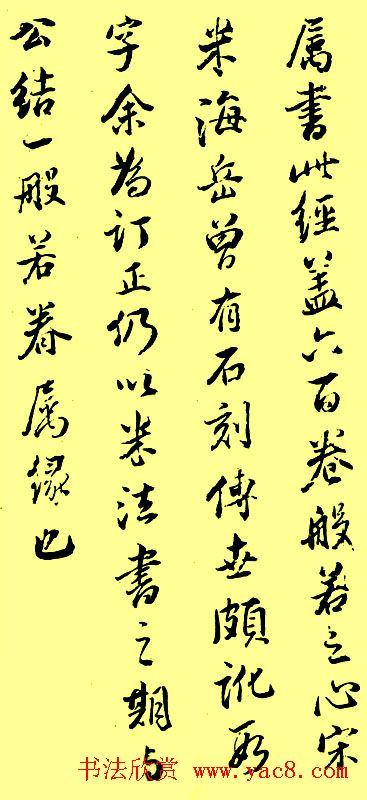 属書此經蓋六百卷般若之心宋
米海岳曾有石刻傳世頗訛數
字余為訂正仍以米法書之期与
公結一般若眷属緣也
书法欣赏 www.yac8.com